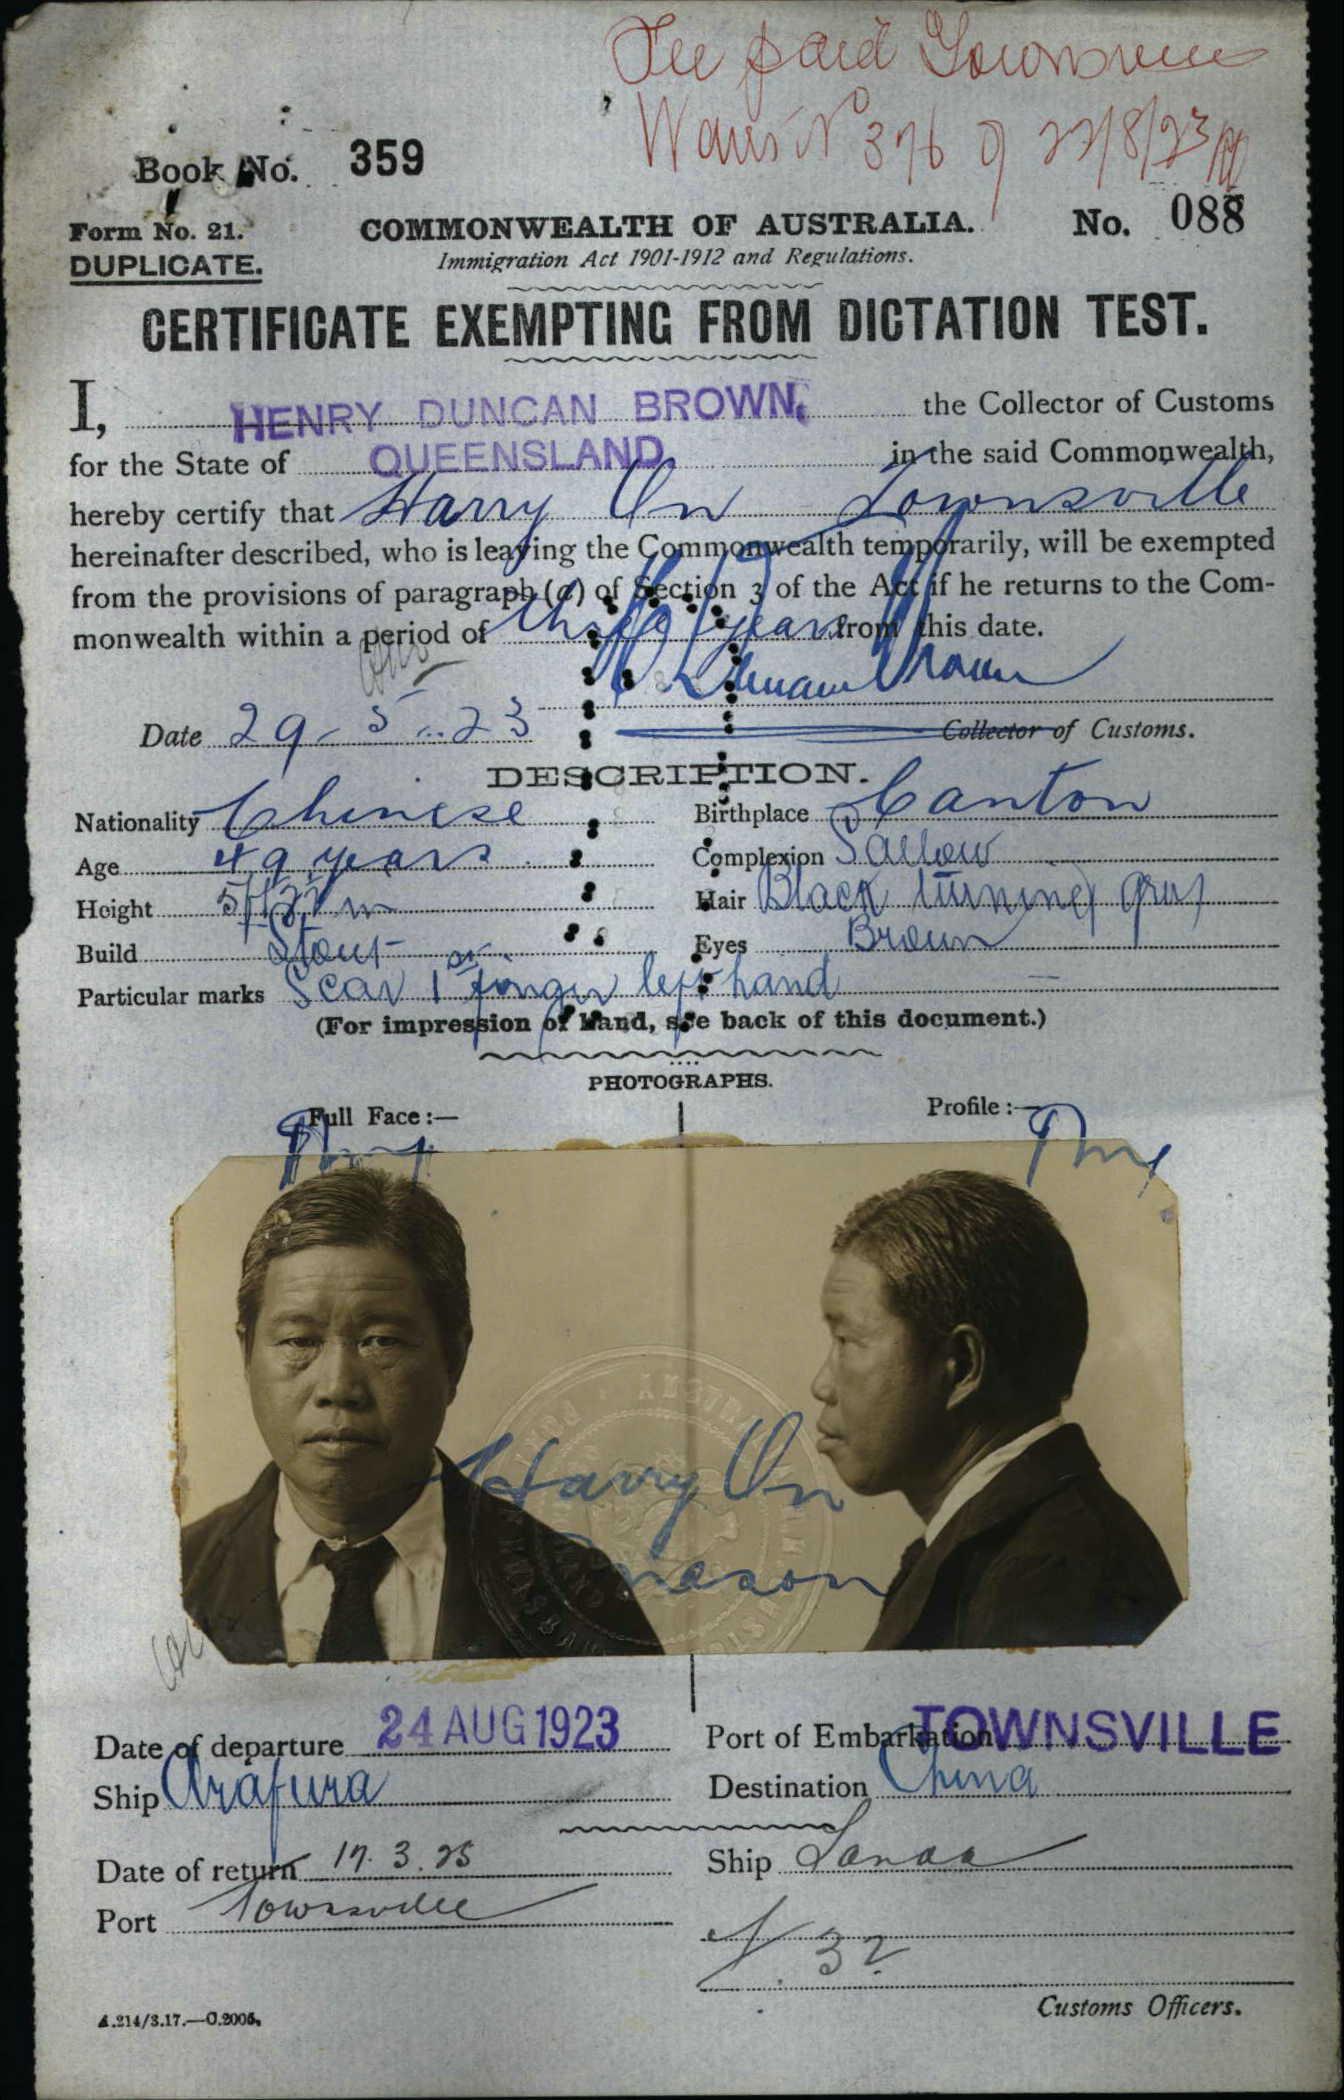 Fee paid Townsville
No 376 of 22/8/23
Book No. 359
Form No. 21.
DUPLICATE.
COMMONWEALTH OF AUSTRALIA.
No. 088
Immigration Act 1901-1912 and Regulations.
CERTIFICATE EXEMPTING FROM DICTATION TEST.
I, HENRY DUNCAN BROWN, the Collector of Customs
for the State of QUEENSLAND in the said Commonwealth,
hereby certify that Harry On Townsville
hereinafter described, who is leaving the Commonwealth temporarily, will be exempted
from the provisions of paragraph (a) of Section 3 of the Act if he returns to the Com-
monwealth within a period of three years from this date.
H Duncan Brown
Date 29-5-23
Collector of Customs.
DESCRIPTION.
Nationality Chinese Birthplace Canton
Age 49 years Complexion Sallow
Height Hair Black turning grey
Build Stout Eyes Brown
Particular marks Scar 1st finger left hand
(For impression of hand, see back of this document.)
PHOTOGRAPHS.
Full Face:— Profile:—
Harry On
Date of departure 24 AUG 1923 Port of Embarkation TOWNSVILLE
Ship Arafura Destination China
Date of return 17.3.25 Ship
Port Townsville
32
Customs Officers.
A.214/3.17.—C.2005.